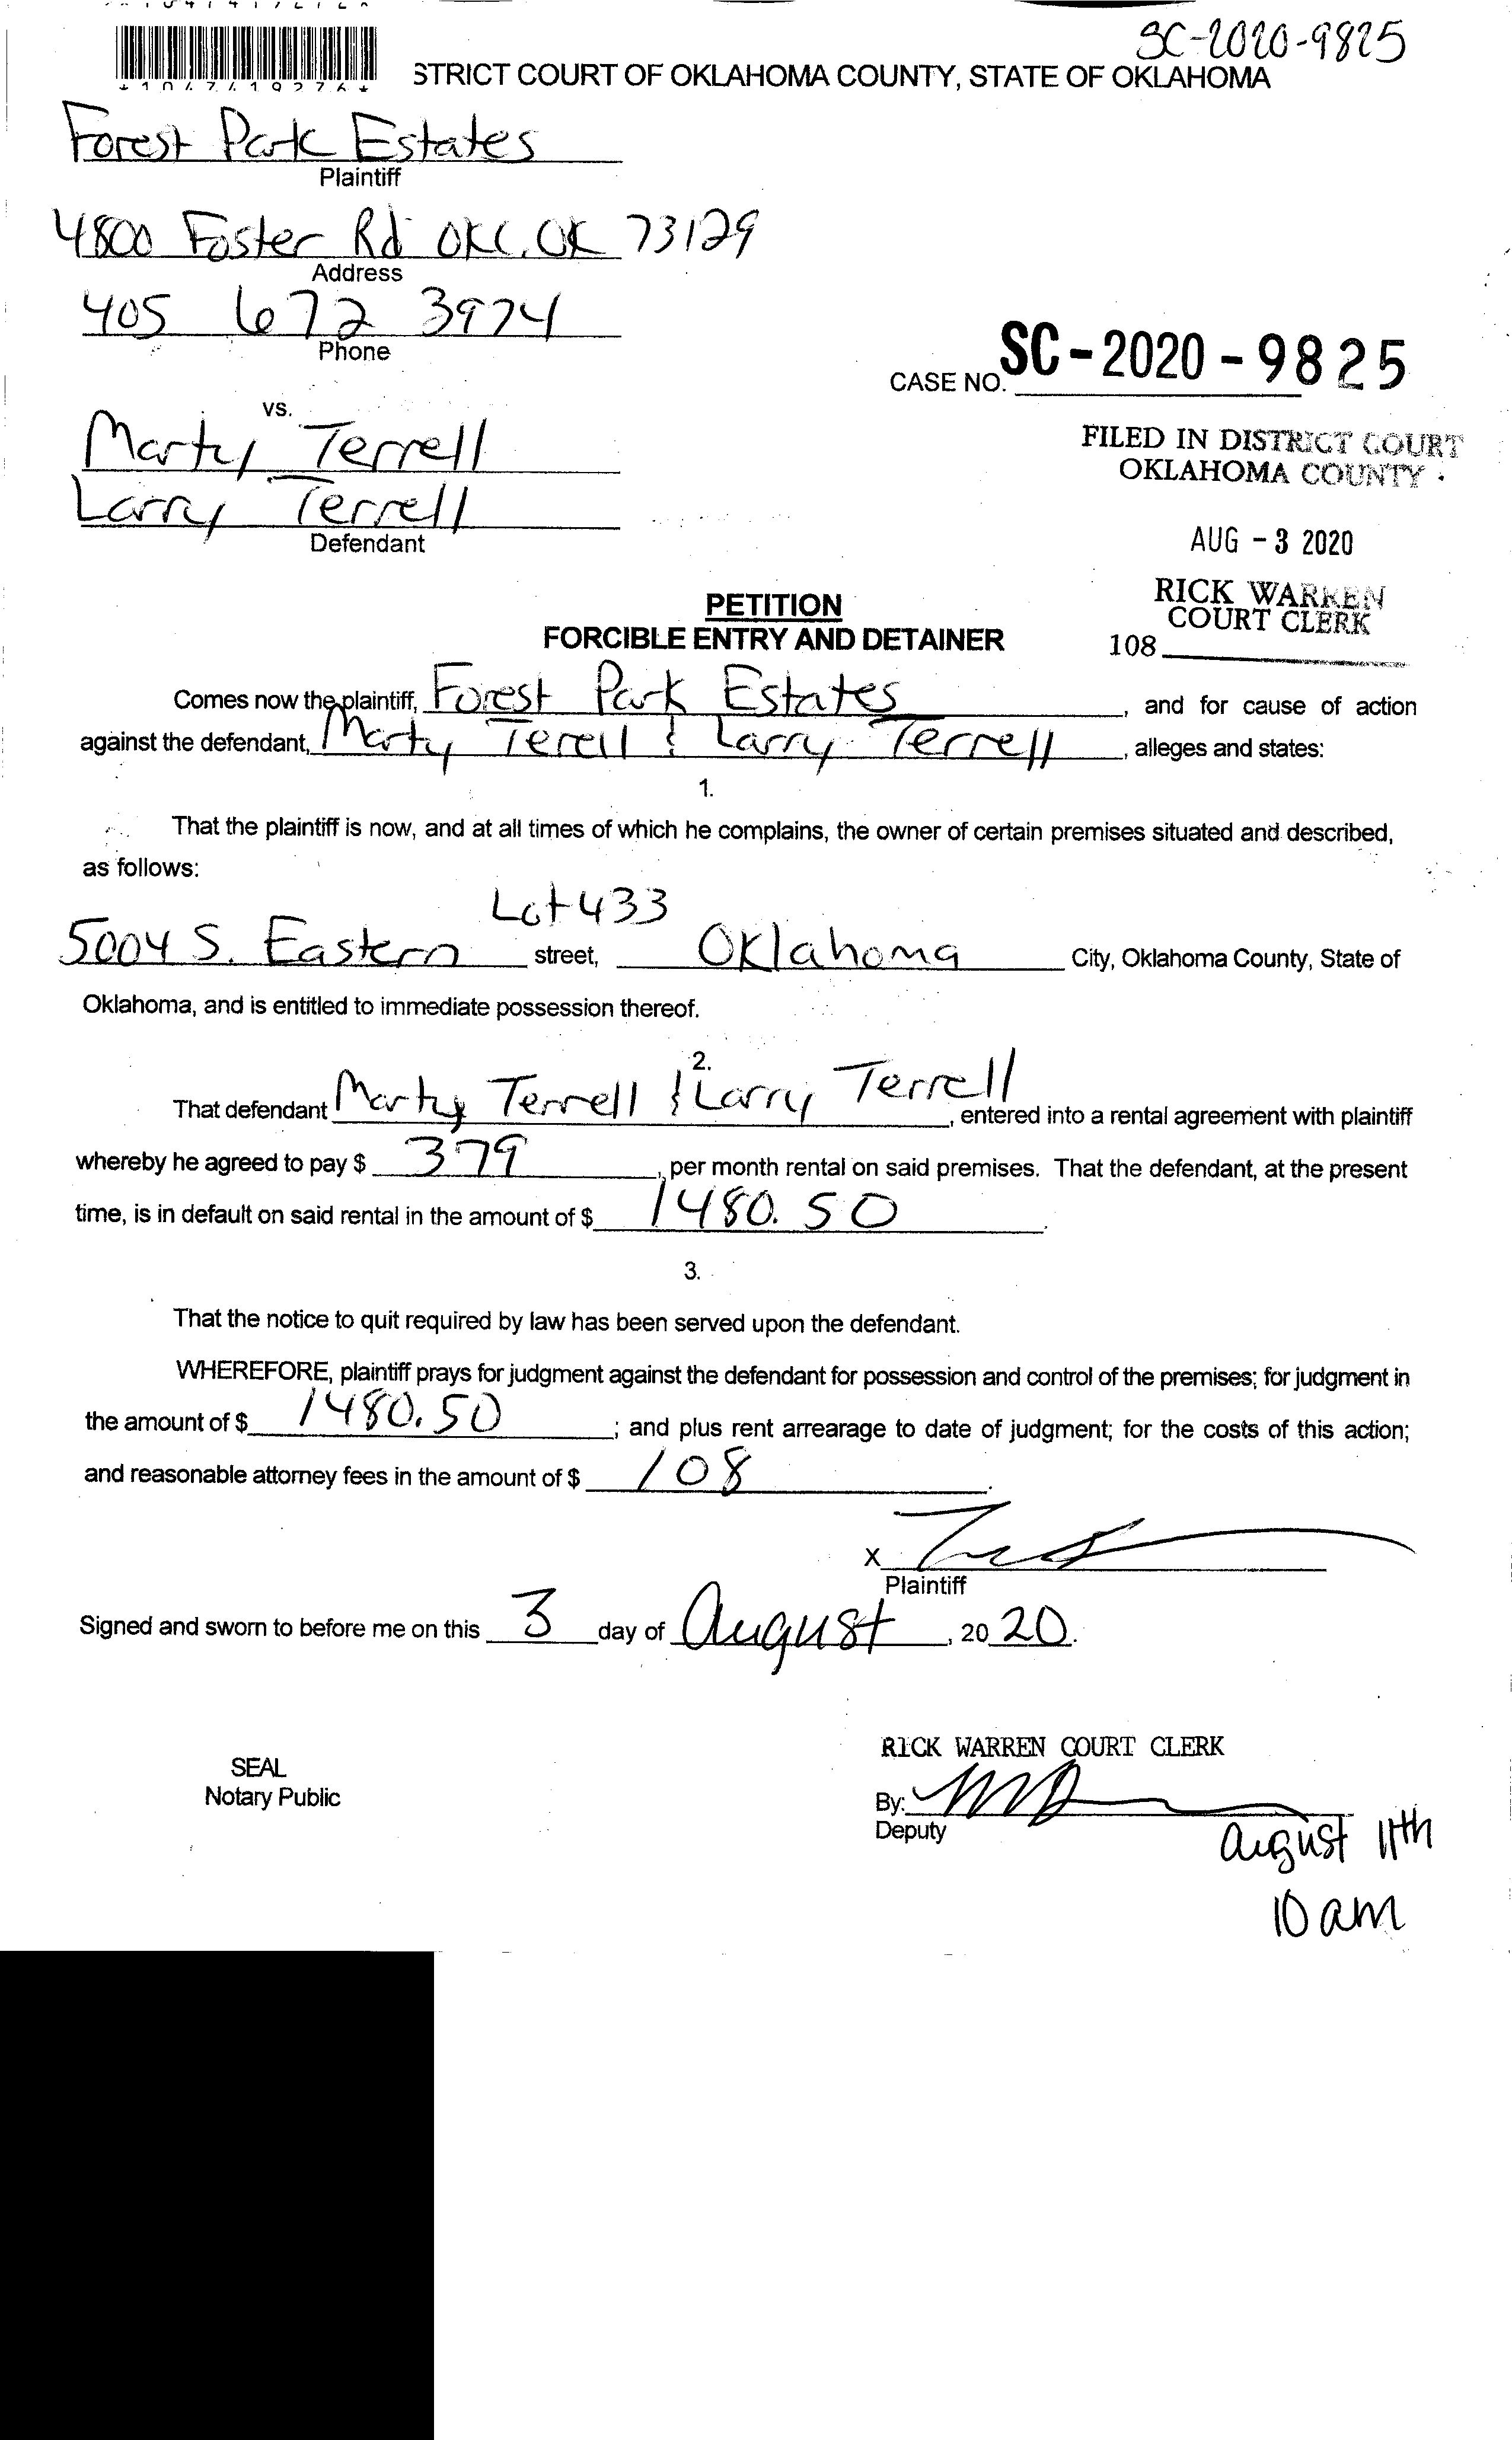 SC-2020-9825
STRICT COURT OF OKLAHOMA COUNTY, STATE OF OKLAHOMA
Forest Park Estates
Plaintiff
4800 Foster Rd OKC, OK 73129
Address
405 672 3974
Phone
CASE NO. SC-2020-9825
vs.
FILED IN DISTRICT COURT
OKLAHOMA COUNTY
Marty Terrell
Larry Terrell
Defendant
AUG - 3 2020
RICK WARREN
COURT CLERK
108
PETITION
FORCIBLE ENTRY AND DETAINER
Comes now the plaintiff, Forest Park Estates, and for cause of action
against the defendant, Marty Terell & Larry Terrell, alleges and states:
1.
That the plaintiff is now, and at all times of which he complains, the owner of certain premises situated and described,
as follows:
Lot 433
5004 S. Eastern street, Oklahoma City, Oklahoma County, State of
Oklahoma, and is entitled to immediate possession thereof.
2.
That defendant Marty Terrell & Larry Terrell, entered into a rental agreement with plaintiff
whereby he agreed to pay $ 379, per month rental on said premises. That the defendant, at the present
time, is in default on said rental in the amount of $ 1480.50.
3.
That the notice to quit required by law has been served upon the defendant.
WHEREFORE, plaintiff prays for judgment against the defendant for possession and control of the premises; for judgment in
the amount of $ 1480.50; and plus rent arrearage to date of judgment; for the costs of this action;
and reasonable attorney fees in the amount of $ 108.
X
Plaintiff
Signed and sworn to before me on this 3 day of August, 20 20.
RICK WARREN COURT CLERK
SEAL
Notary Public
By:
Deputy
August 11th
10 am